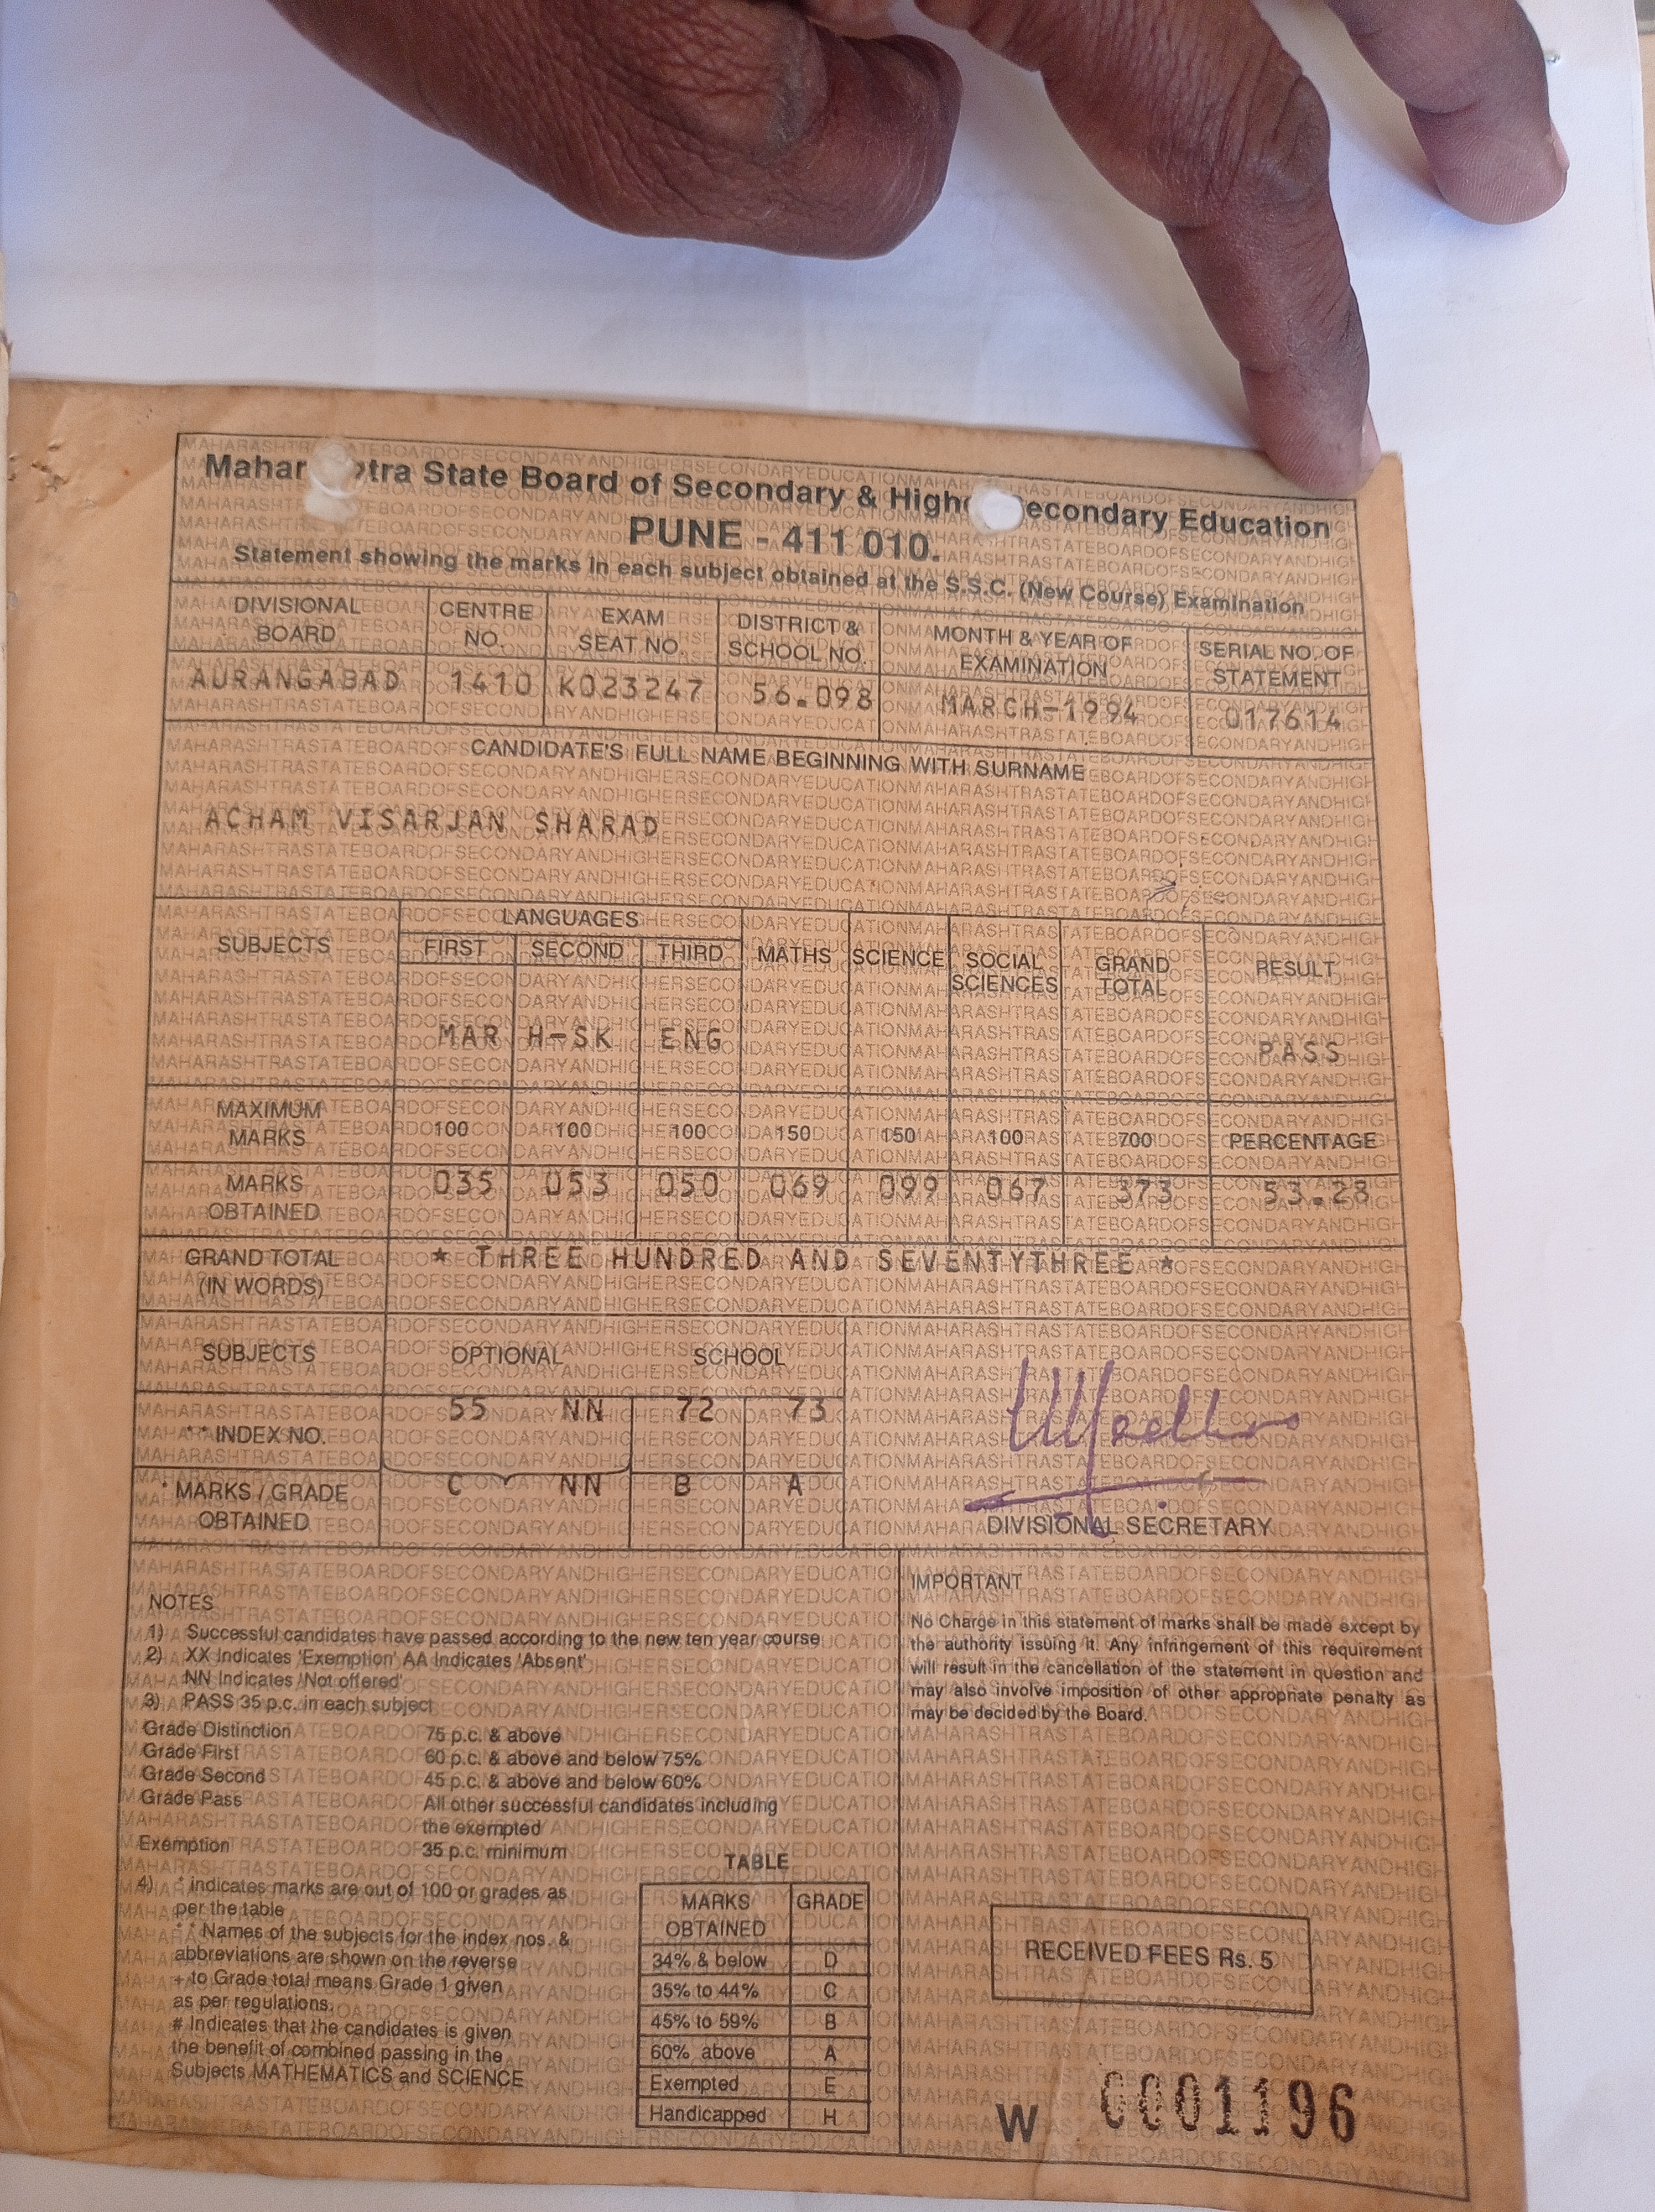 Mahar tra State Board of Secondary & High econdary Education
PUNE - 411 010.
Statement showing the marks in each subject obtained at the S.S.C. (New Course) Examination
DIVISIONAL BOARD CENTRE NO. EXAM SEAT NO. DISTRICT & SCHOOL NO. MONTH & YEAR OF EXAMINATION SERIAL NO. OF STATEMENT
AURANGABAD 1410 K023247 56.098 MARCH-1994 017614
CANDIDATE'S FULL NAME BEGINNING WITH SURNAME
ACHAM VISARJAN SHARAD
LANGUAGES
SUBJECTS FIRST SECOND THIRD MATHS SCIENCE SOCIAL SCIENCES GRAND TOTAL RESULT
MAR H-SK ENG PASS
MAXIMUM MARKS 100 100 100 150 150 100 700 PERCENTAGE
MARKS OBTAINED 035 053 050 069 099 067 373 53.28
GRAND TOTAL (IN WORDS) * THREE HUNDRED AND SEVENTYTHREE *
SUBJECTS OPTIONAL SCHOOL
* * INDEX NO. 55 NN 72 73
* MARKS / GRADE OBTAINED C NN B A
DIVISIONAL SECRETARY
NOTES
1) Successful candidates have passed according to the new ten year course
2) XX Indicates 'Exemption' AA Indicates 'Absent'
NN Indicates 'Not offered'
3) PASS 35 p.c. in each subject
Grade Distinction 75 p.c. & above
Grade First 60 p.c. & above and below 75%
Grade Second 45 p.c. & above and below 60%
Grade Pass All other successful candidates including
the exempted
Exemption 35 p.c. minimum
4) * indicates marks are out of 100 or grades as
per the table
* * Names of the subjects for the index nos. &
abbreviations are shown on the reverse
+ to Grade total means Grade 1 given
as per regulations.
# Indicates that the candidates is given
the benefit of combined passing in the
Subjects MATHEMATICS and SCIENCE
TABLE
MARKS OBTAINED GRADE
34% & below D
35% to 44% C
45% to 59% B
60% above A
Exempted E
Handicapped H
IMPORTANT
No Charge in this statement of marks shall be made except by
the authority issuing it. Any infringement of this requirement
will result in the cancellation of the statement in question and
may also involve imposition of other appropriate penalty as
may be decided by the Board.
RECEIVED FEES Rs. 5
W 0001196